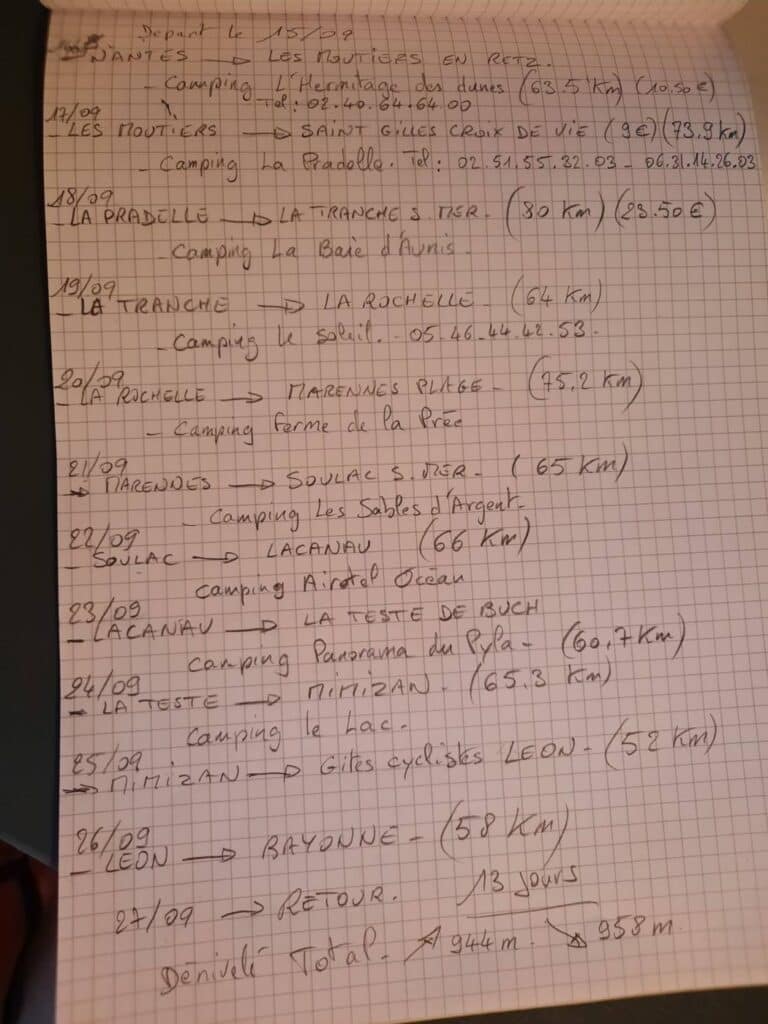 Départ le 15/09
NANTES → LES MOUTIERS EN RETZ.
- Camping L'Hermitage des dunes (63.5 Km) (10.50€)
Tel : 02.40.64.64.00
17/09
- LES MOUTIERS → SAINT GILLES CROIX DE VIE (9€) (73.9 km)
- Camping La Pradelle. Tel : 02.51.55.32.03 - 06.31.14.26.03
18/09
- LA PRADELLE → LA TRANCHE S. MER. (80 Km) (23.50€)
- Camping La Baie d'Aunis.
19/09
- LA TRANCHE → LA ROCHELLE - (64 Km)
- Camping le Soleil. 05.46.44.42.53.
20/09
- LA ROCHELLE → MARENNES PLAGE - (75.2 Km)
- Camping ferme de la Prée
21/09
→ MARENNES → SOULAC S. MER - (65 Km)
- Camping Les Sables d'Argent.
22/09
- SOULAC → LACANAU (66 Km)
Camping Airotel Océan
23/09
- LACANAU → LA TESTE DE BUCH
Camping Panorama du Pyla - (60,7 Km)
24/09
- LA TESTE → MIMIZAN. (65.3 Km)
Camping le Lac.
25/09
→ MIMIZAN → Gites cyclistes LEON - (52 Km)
26/09
- LEON → BAYONNE - (58 Km)
27/09 → RETOUR. 13 jours
Dénivelé Total. ↗ 944 m. ↘ 958 m